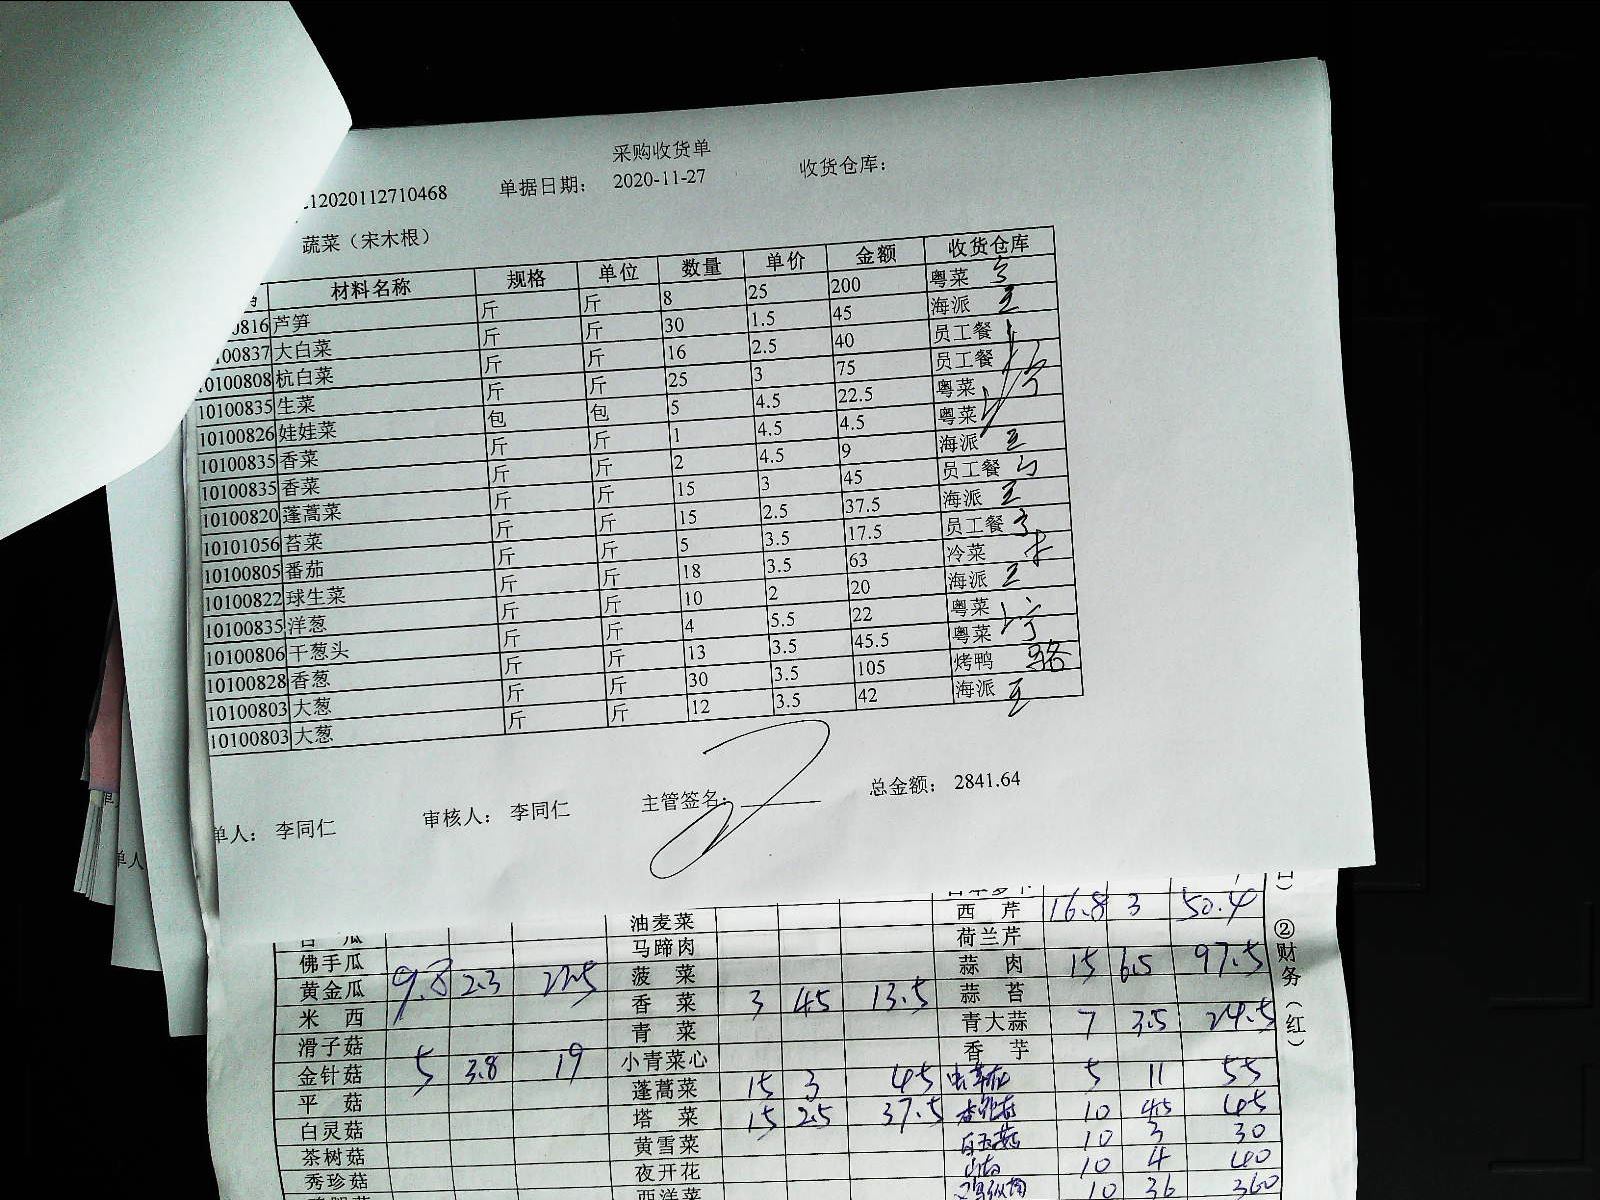 采购收货单
12020112710468 单据日期： 2020-11-27 收货仓库：
蔬菜（宋木根）
材料名称 规格 单位 数量 单价 金额 收货仓库
0816 芦笋 斤 斤 8 25 200 粤菜
00837 大白菜 斤 斤 30 1.5 45 海派 王
10100808 杭白菜 斤 斤 16 2.5 40 员工餐
10100835 生菜 斤 斤 25 3 75 员工餐
10100826 娃娃菜 包 包 5 4.5 22.5 粤菜
10100835 香菜 斤 斤 1 4.5 4.5 粤菜
10100835 香菜 斤 斤 2 4.5 9 海派 王
10100820 蓬蒿菜 斤 斤 15 3 45 员工餐
10101056 苔菜 斤 斤 15 2.5 37.5 海派 王
10100805 番茄 斤 斤 5 3.5 17.5 员工餐
10100822 球生菜 斤 斤 18 3.5 63 冷菜
10100835 洋葱 斤 斤 10 2 20 海派 王
10100806 干葱头 斤 斤 4 5.5 22 粤菜
10100828 香葱 斤 斤 13 3.5 45.5 粤菜
10100803 大葱 斤 斤 30 3.5 105 烤鸭 骆
10100803 大葱 斤 斤 12 3.5 42 海派 王
单人： 李同仁 审核人： 李同仁 主管签名： 总金额： 2841.64
单人
油麦菜 西芹 16.8 3 50.4
马蹄肉 荷兰芹
佛手瓜 菠菜 蒜肉 15 6.5 97.5
黄金瓜 9.8 2.3 22.5 香菜 3 4.5 13.5 蒜苔
米西 青菜 青大蒜 7 3.5 24.5
滑子菇 小青菜心 香芋
金针菇 5 3.8 19 蓬蒿菜 15 3 45 虫草花 5 11 55
平菇 塔菜 15 2.5 37.5 10 4.5 45
白灵菇 黄雪菜 白玉菇 10 3 30
茶树菇 夜开花 10 4 40
秀珍菇 西洋菜 10 36 360
②财务（红）